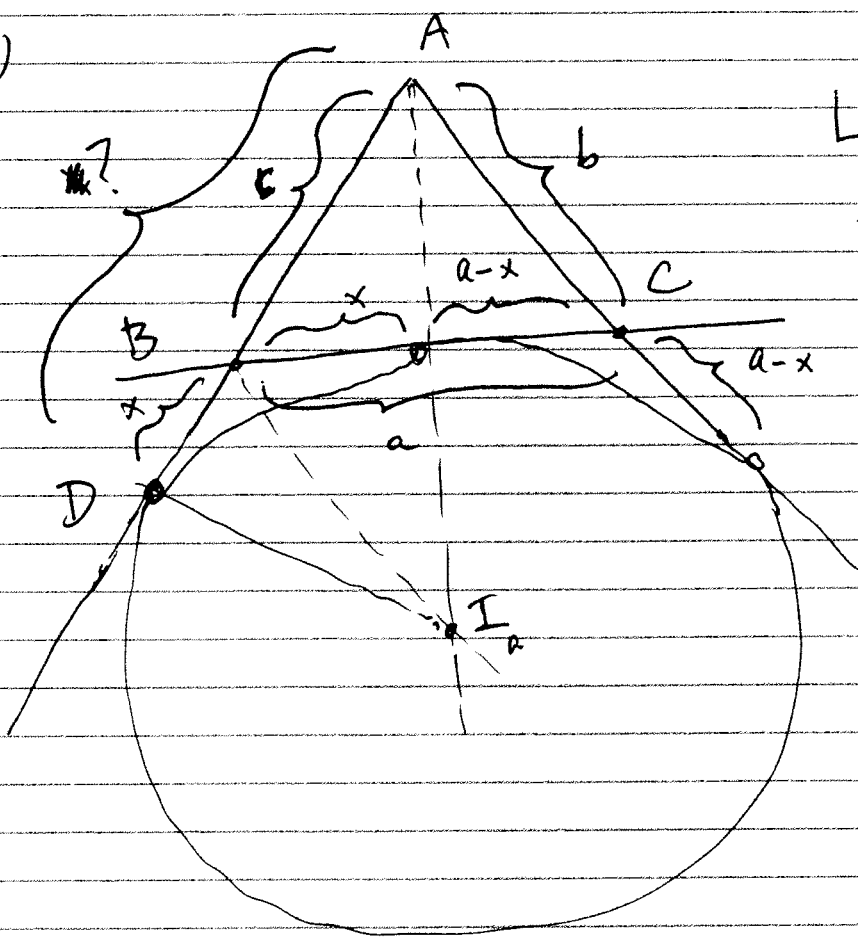 )
A
L
?
c
b
x
a-x
C
B
x
a-x
a
D
I a